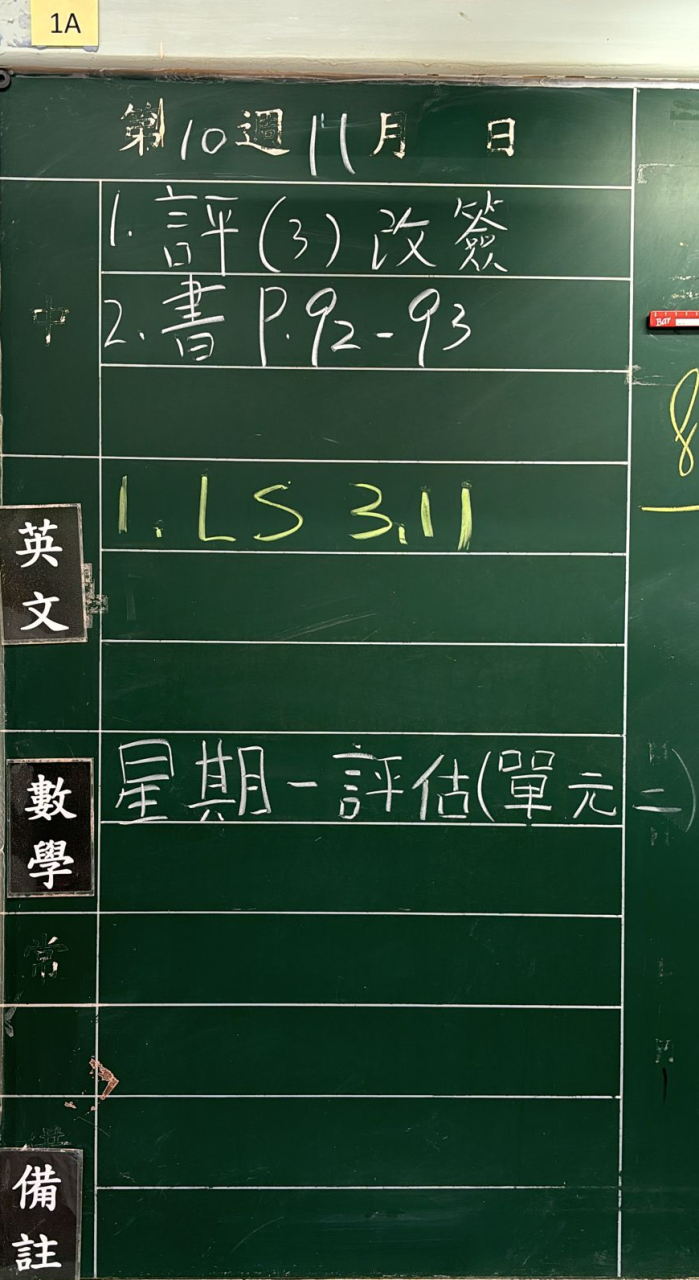 1A
第10週11月 日
中
1. 評(3)改簽
2. 書 P.92-93
Bar
8
英文
1. LS 3.11
數學
星期一評估(單元二)
常
備註